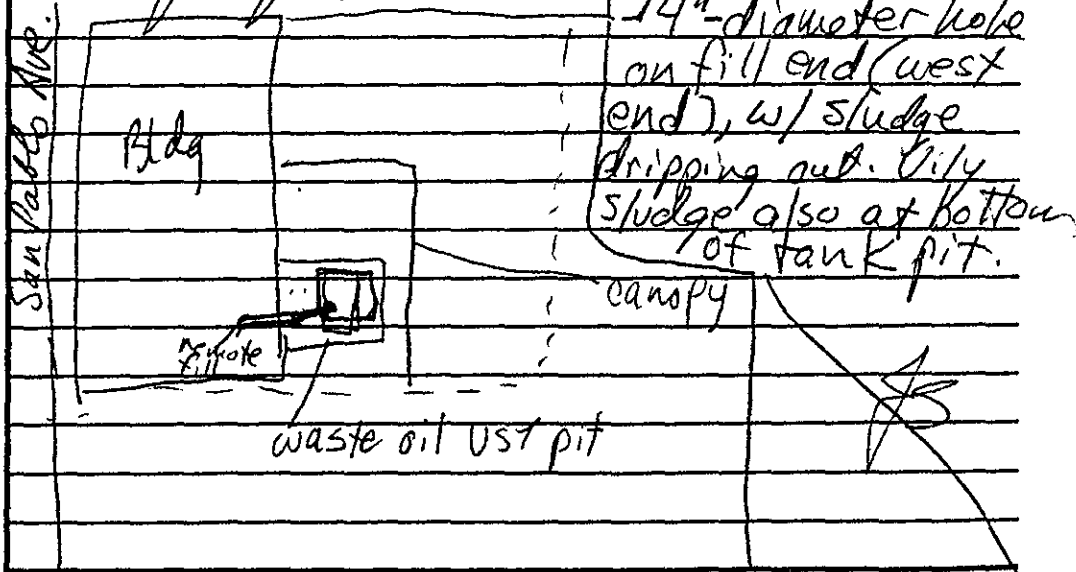 San Pablo Ave.
-14"-diameter hole
on fill end (west
end), w/ sludge
dripping out. Oily
sludge also at bottom
of tank pit.
Bldg
canopy
remote
fill
waste oil UST pit